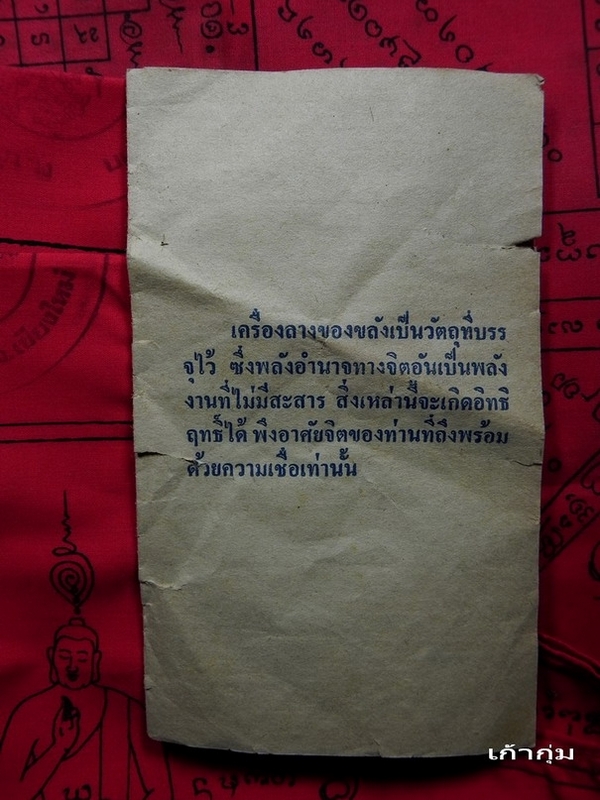 เครื่องลางของขลังเป็นวัตถุที่บรร
จุไว้ ซึ่งพลังอำนาจทางจิตอันเป็นพลัง
งานที่ไม่มีสะสาร สิ่งเหล่านี้จะเกิดอิทธิ
ฤทธิ์ได้ พึงอาศัยจิตของท่านที่ถึงพร้อม
ด้วยความเชื่อเท่านั้น
เก้ากุ่ม